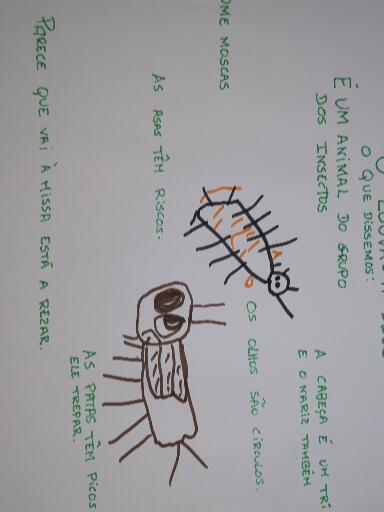 O QUE DISSEMOS:
É UM ANIMAL DO GRUPO
DOS INSECTOS
A CABEÇA É UM TRI
E O NARIZ TAMBÉM
OME MOSCAS
OS OLHOS SÃO CÍRCULOS.
AS ASAS TÊM RISCOS.
AS PATAS TÊM PICOS
ELE TREPAR.
PARECE QUE VAI À MISSA ESTÁ A REZAR.